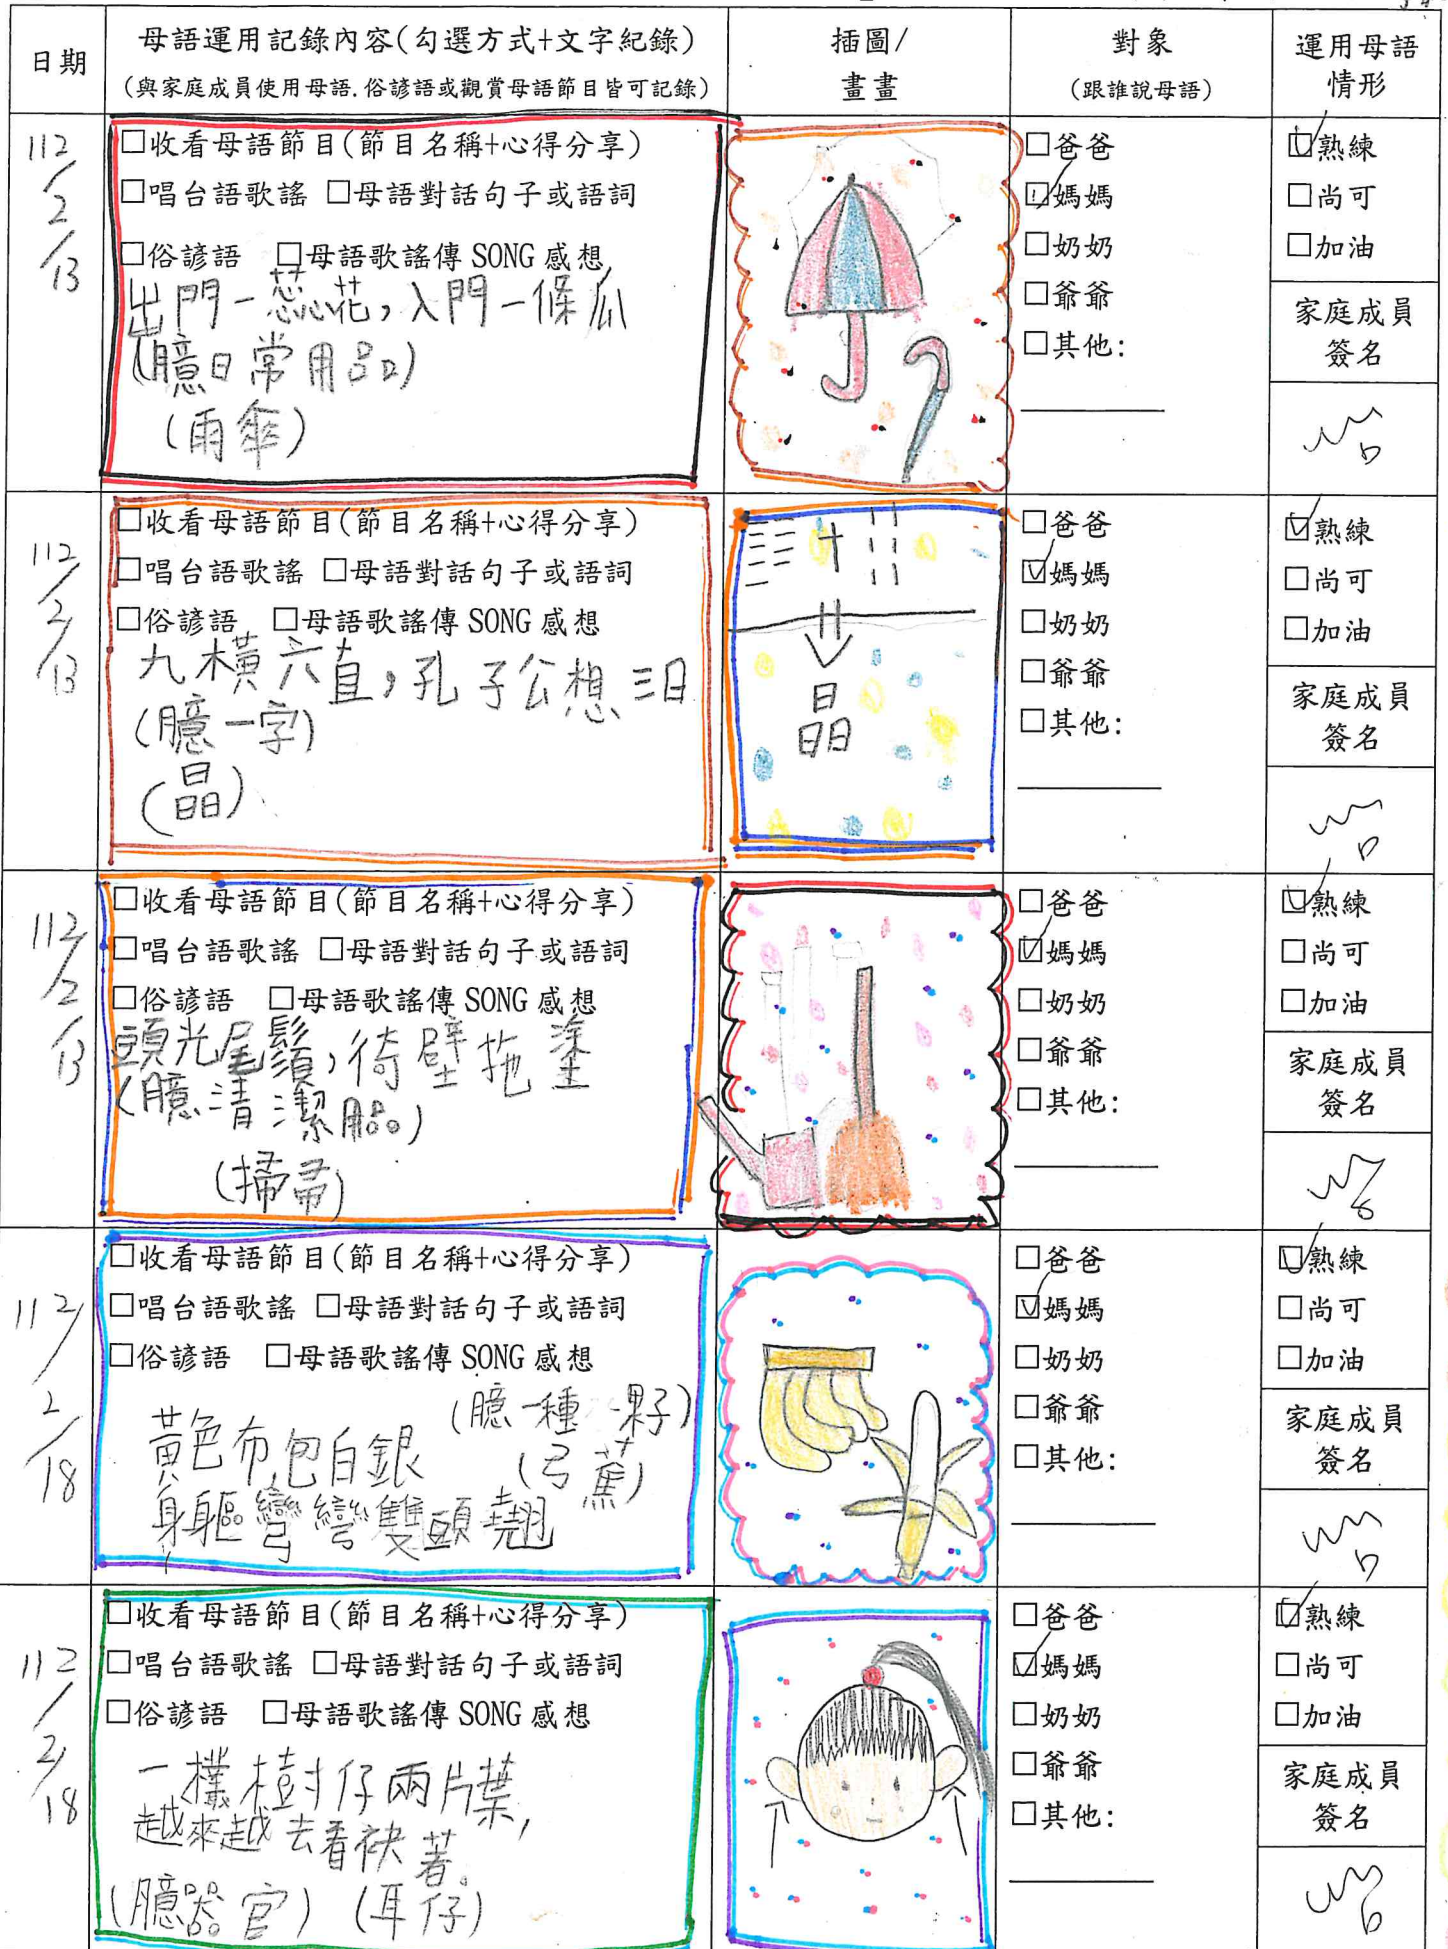 日期
母語運用記錄內容(勾選方式+文字紀錄)
(與家庭成員使用母語.俗諺語或觀賞母語節目皆可記錄)
插圖/
畫畫
對象
(跟誰說母語)
運用母語
情形
112/2/13
□收看母語節目(節目名稱+心得分享)
□唱台語歌謠 □母語對話句子或語詞
□俗諺語 □母語歌謠傳 SONG 感想
出門一蕊花,入門一條瓜
(臆日常用品)
(雨傘)
□爸爸
☑媽媽
□奶奶
□爺爺
□其他:
☑熟練
□尚可
□加油
家庭成員
簽名
112/2/13
□收看母語節目(節目名稱+心得分享)
□唱台語歌謠 □母語對話句子或語詞
□俗諺語 □母語歌謠傳 SONG 感想
九橫六直,孔子公想三日
(臆一字)
(晶)
十
晶
□爸爸
☑媽媽
□奶奶
□爺爺
□其他:
☑熟練
□尚可
□加油
家庭成員
簽名
112/2/13
□收看母語節目(節目名稱+心得分享)
□唱台語歌謠 □母語對話句子或語詞
□俗諺語 □母語歌謠傳 SONG 感想
頭光尾鬚,徛壁拖塗
(臆清潔用品)
(掃帚)
□爸爸
☑媽媽
□奶奶
□爺爺
□其他:
☑熟練
□尚可
□加油
家庭成員
簽名
112/2/18
□收看母語節目(節目名稱+心得分享)
□唱台語歌謠 □母語對話句子或語詞
□俗諺語 □母語歌謠傳 SONG 感想
(臆一種果子)
黃色布包白銀
(弓蕉)
身軀彎彎雙頭翹
□爸爸
☑媽媽
□奶奶
□爺爺
□其他:
☑熟練
□尚可
□加油
家庭成員
簽名
112/2/18
□收看母語節目(節目名稱+心得分享)
□唱台語歌謠 □母語對話句子或語詞
□俗諺語 □母語歌謠傳 SONG 感想
一欉樹仔兩片葉,
越來越去看袂著。
(臆器官) (耳仔)
□爸爸
☑媽媽
□奶奶
□爺爺
□其他:
☑熟練
□尚可
□加油
家庭成員
簽名